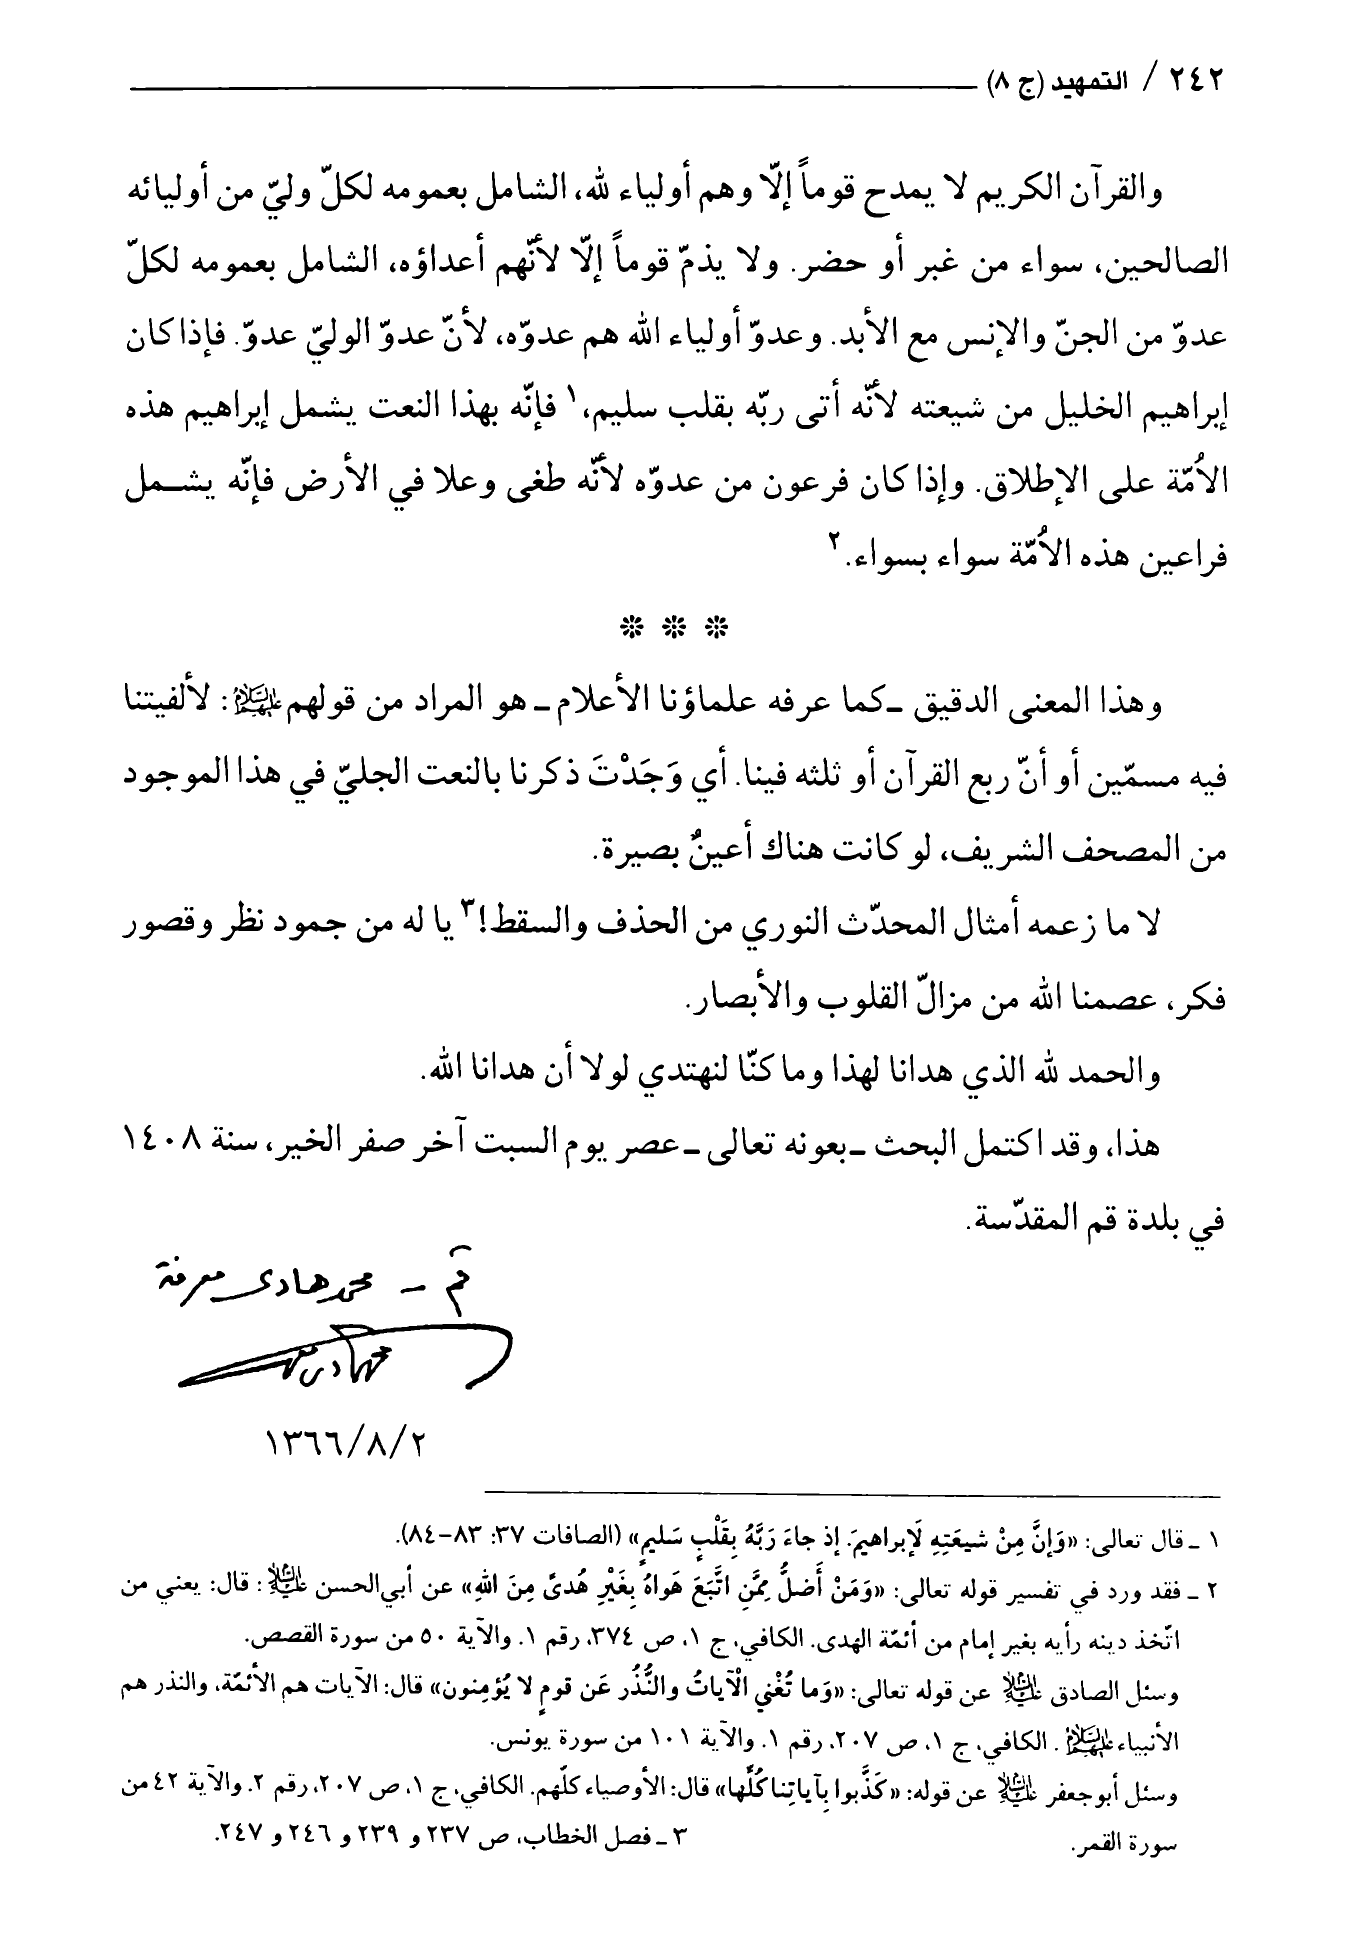 ٢٤٢ / التمهيد (ج ٨)
والقرآن الكريم لا يمدح قوماً إلّا وهم أولياء لله، الشامل بعمومه لكلّ وليّ من أوليائه
الصالحين، سواء من غبر أو حضر. ولا يذمّ قوماً إلّا لأنّهم أعداؤه، الشامل بعمومه لكلّ
عدوّ من الجنّ والإنس مع الأبد. وعدوّ أولياء الله هم عدوّه، لأنّ عدوّ الوليّ عدوّ. فإذا كان
إبراهيم الخليل من شيعته لأنّه أتى ربّه بقلب سليم،١ فإنّه بهذا النعت يشمل إبراهيم هذه
الأُمّة على الإطلاق. وإذا كان فرعون من عدوّه لأنّه طغى وعلا في الأرض فإنّه يشمل
فراعين هذه الأُمّة سواء بسواء.٢
* * *
وهذا المعنى الدقيق ـ كما عرفه علماؤنا الأعلام ـ هو المراد من قولهم عليهم السلام: لألفيتنا
فيه مسمّين أو أنّ ربع القرآن أو ثلثه فينا. أي وَجَدْتَ ذكرنا بالنعت الجليّ في هذا الموجود
من المصحف الشريف، لو كانت هناك أعينٌ بصيرة.
لا ما زعمه أمثال المحدّث النوري من الحذف والسقط!٣ يا له من جمود نظر وقصور
فكر، عصمنا الله من مزالّ القلوب والأبصار.
والحمد لله الذي هدانا لهذا وما كنّا لنهتدي لولا أن هدانا الله.
هذا، وقد اكتمل البحث ـ بعونه تعالى ـ عصر يوم السبت آخر صفر الخير، سنة ١٤٠٨
في بلدة قم المقدّسة.
قم ـ محمد هادى معرفة
١٣٦٦/٨/٢
١ ـ قال تعالى: «وَإِنَّ مِنْ شيعَتِهِ لَإبراهيمَ. إذ جاءَ رَبَّهُ بِقَلْبٍ سَليمٍ» (الصافات ٣٧: ٨٣-٨٤).
٢ ـ فقد ورد في تفسير قوله تعالى: «وَمَنْ أَضلُّ مِمَّنِ اتَّبَعَ هَواهُ بِغَيْرِ هُدىً مِنَ اللهِ» عن أبي‌الحسن عليه السلام: قال: يعني من
اتّخذ دينه رأيه بغير إمام من أئمّة الهدى. الكافي، ج ١، ص ٣٧٤، رقم ١. والآية ٥٠ من سورة القصص.
وسئل الصادق عليه السلام عن قوله تعالى: «وَما تُغْني الْآياتُ والنُّذُر عَن قومٍ لا يُؤمِنون» قال: الآيات هم الأئمّة، والنذر هم
الأنبياء عليهم السلام. الكافي، ج ١، ص ٢٠٧، رقم ١. والآية ١٠١ من سورة يونس.
وسئل أبوجعفر عليه السلام عن قوله: «كَذَّبوا بِآياتِنا كُلِّها» قال: الأوصياء كلّهم. الكافي، ج ١، ص ٢٠٧، رقم ٢. والآية ٤٢ من
سورة القمر.
٣ ـ فصل الخطاب، ص ٢٣٧ و ٢٣٩ و ٢٤٦ و ٢٤٧.